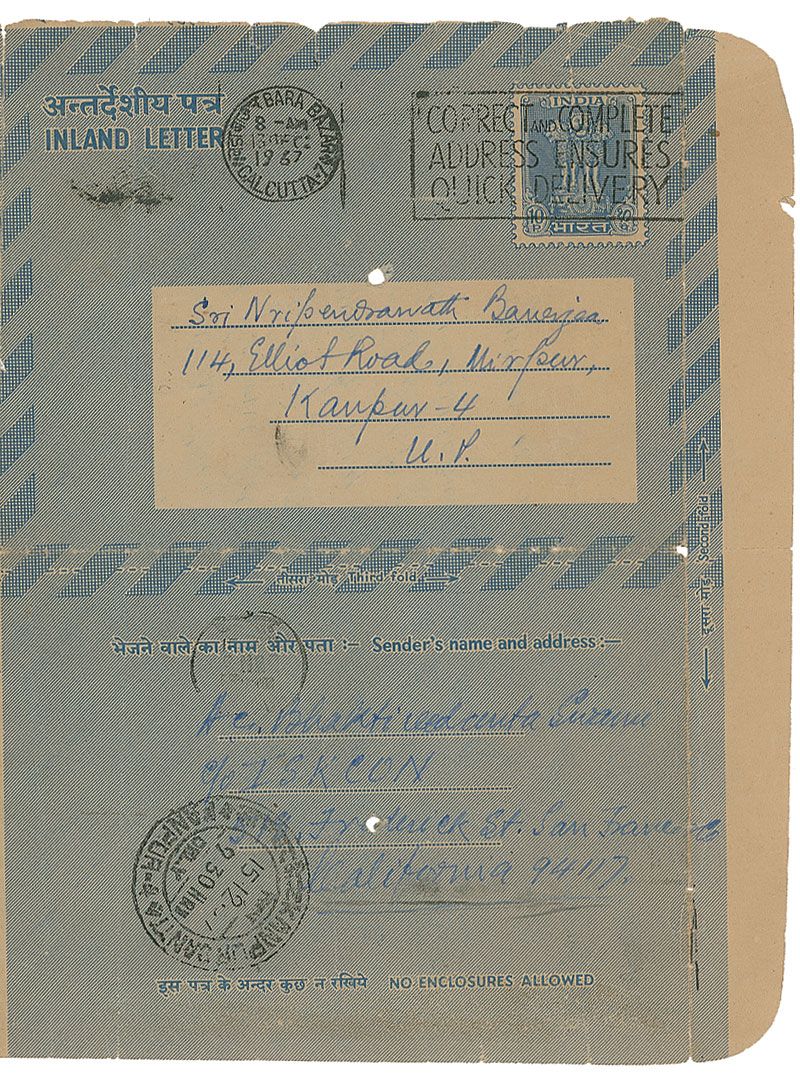 अन्तर्देशीय पत्र
INLAND LETTER
BARA BAZAR
8 - AM
13 DEC
1967
CALCUTTA-7
INDIA
CORRECT AND COMPLETE
ADDRESS ENSURES
QUICK DELIVERY
10 P
भारत
Sri Nripendranath Banerjee
114, Elliot Road, Mirpur,
Kanpur-4
U.P.
तीसरा मोड़ Third fold
दूसरा मोड़ Second fold
भेजने वाले का नाम और पता :- Sender's name and address:-
A c. Bhaktivedanta Swami
c/o ISKCON
Frederick St. San Francisco
California 94117.
KANPUR CANTT
KANPUR-4
9 30 HRS
15.12
इस पत्र के अन्दर कुछ न रखिये NO ENCLOSURES ALLOWED